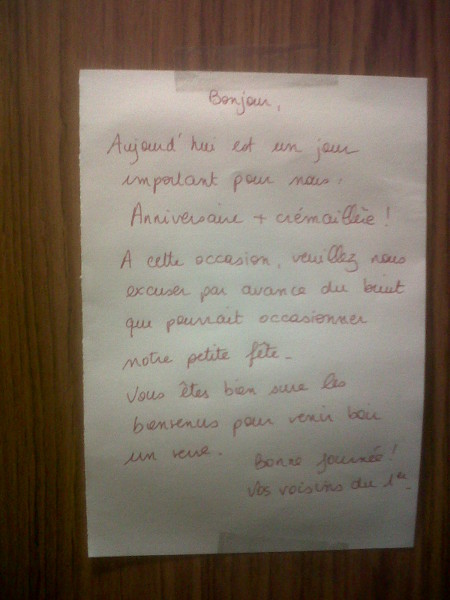 Bonjour,
Aujourd'hui est un jour
important pour nous :
Anniversaire + crémaillère !
A cette occasion, veuillez nous
excuser par avance du bruit
que pourrait occasionner
notre petite fête -
Vous êtes bien sure les
bienvenus pour venir boir
un verre.
Bonne journée !
Vos voisins du 1er -